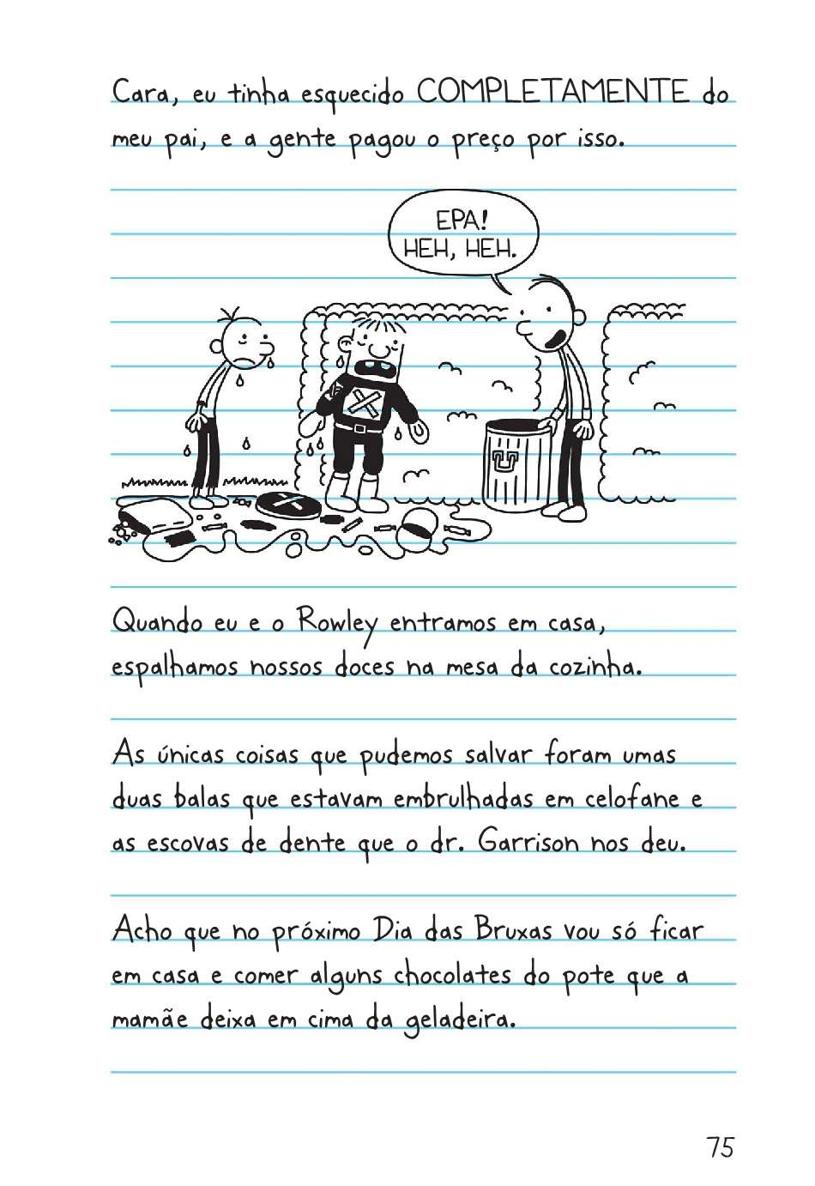 Cara, eu tinha esquecido COMPLETAMENTE do
meu pai, e a gente pagou o preço por isso.
EPA!
HEH, HEH.
Quando eu e o Rowley entramos em casa,
espalhamos nossos doces na mesa da cozinha.
As únicas coisas que pudemos salvar foram umas
duas balas que estavam embrulhadas em celofane e
as escovas de dente que o dr. Garrison nos deu.
Acho que no próximo Dia das Bruxas vou só ficar
em casa e comer alguns chocolates do pote que a
mamãe deixa em cima da geladeira.
75